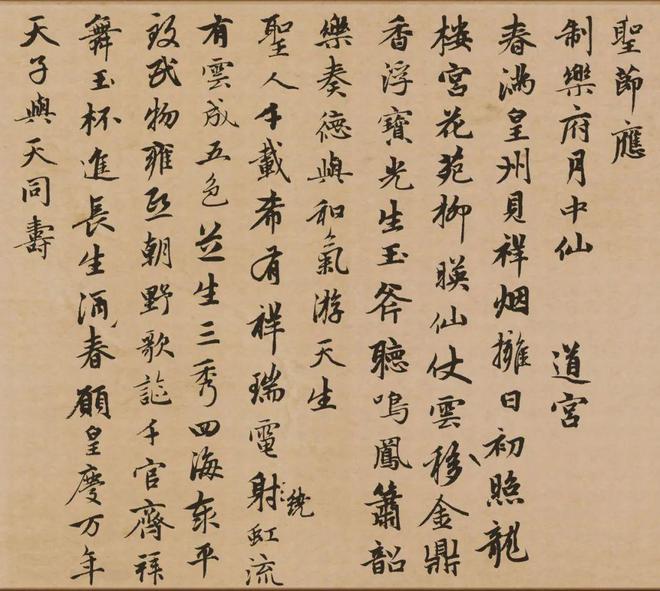 聖節應
制樂府月中仙 道宮
春滿皇州見祥烟擁日初照龍
樓宮花苑柳暎仙仗雲移金鼎
香浮寶光生玉斧聽鳴鳳簫韶
樂奏德與和氣游天生
聖人千載希有祥瑞電射虹流
繞
有雲成五色芝生三秀四海泰平
致民物雍熙朝野歌謠千官齊拜
舞玉杯進長生酒春願皇慶万年
天子與天同壽